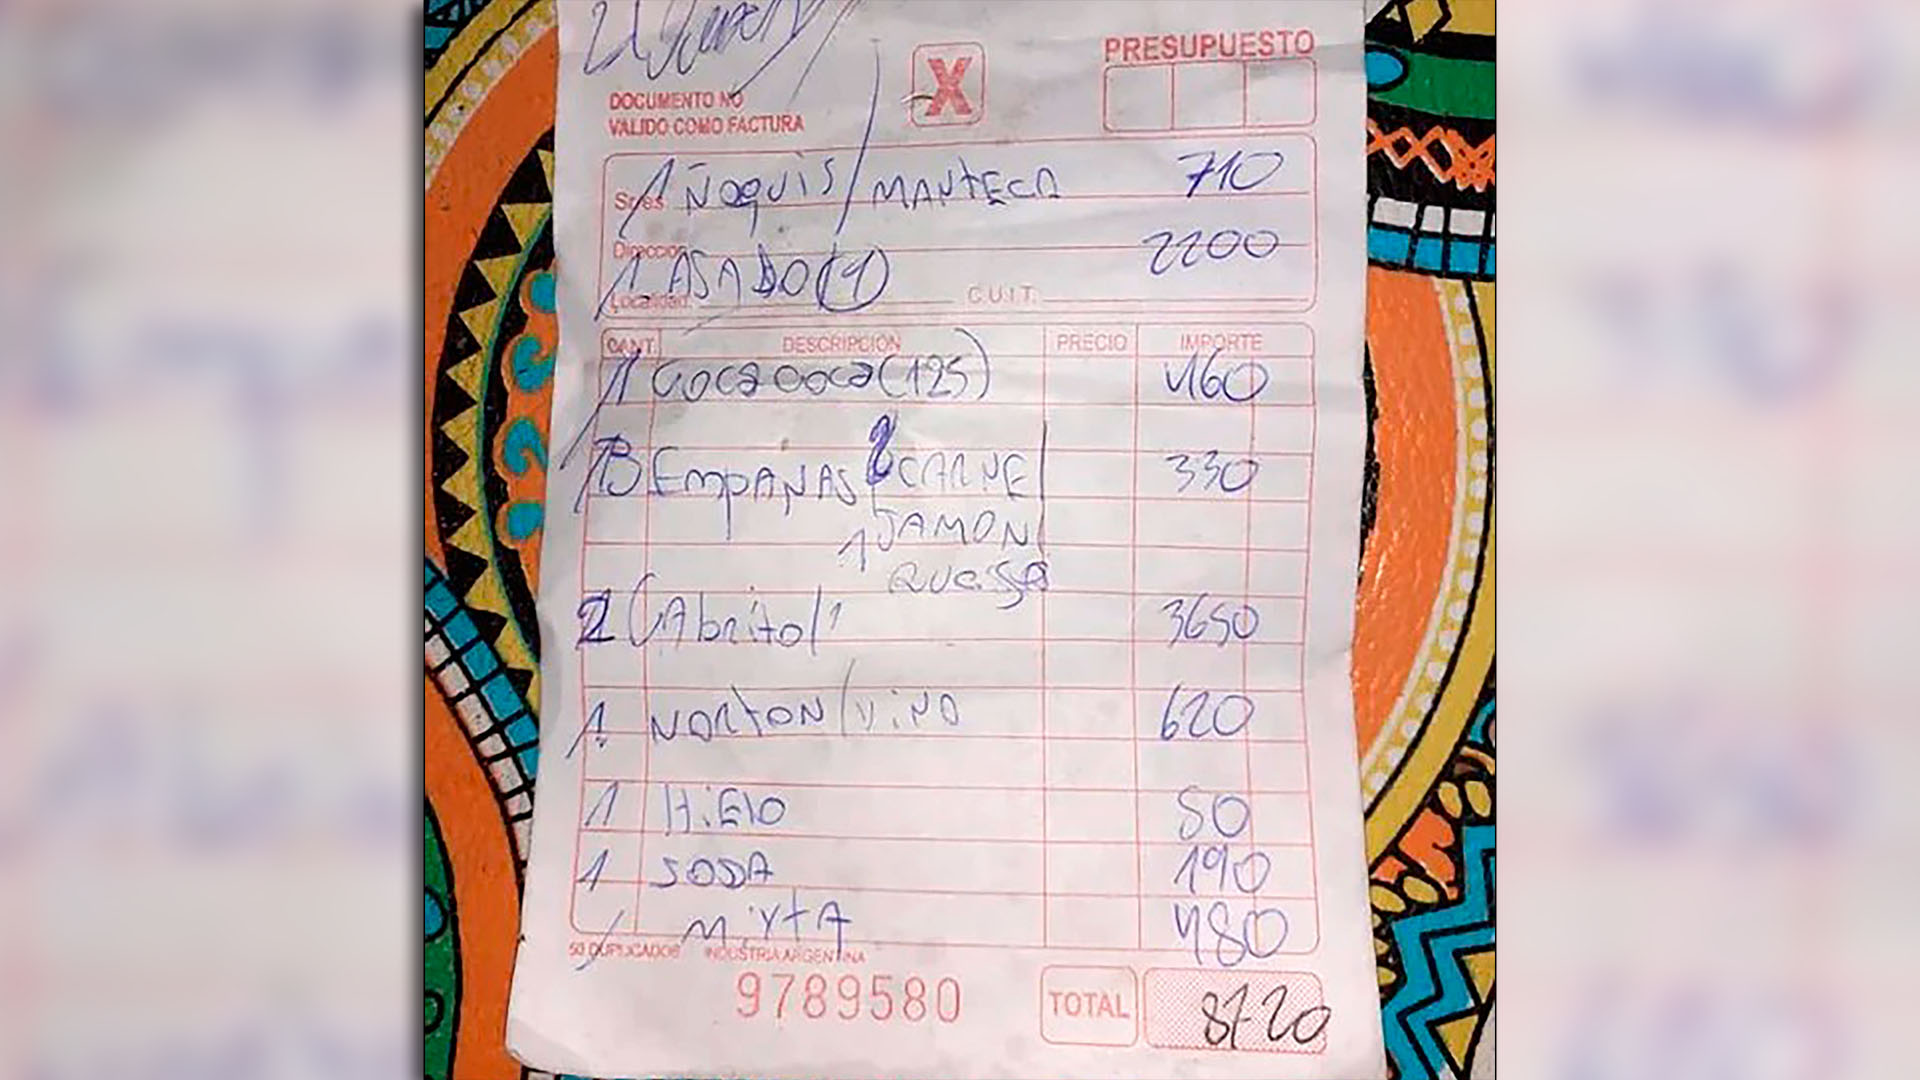 DOCUMENTO NO
VALIDO COMO FACTURA
X
PRESUPUESTO
Sres.
1 ÑOQUIS / MANTECA 710
Dirección
1 ASADO (1) 2200
Localidad: C.U.I.T.:
CANT. DESCRIPCION PRECIO IMPORTE
1 COCA COCA (125) 460
3 EMPAÑAS 2 CARNE 330
1 JAMON
2 CAbrito/1 3650
1 NORTON/VINO 620
1 HiElO 50
1 SODA 190
MiXTA 480
50 DUPLICADOS INDUSTRIA ARGENTINA
9789580
TOTAL 8720